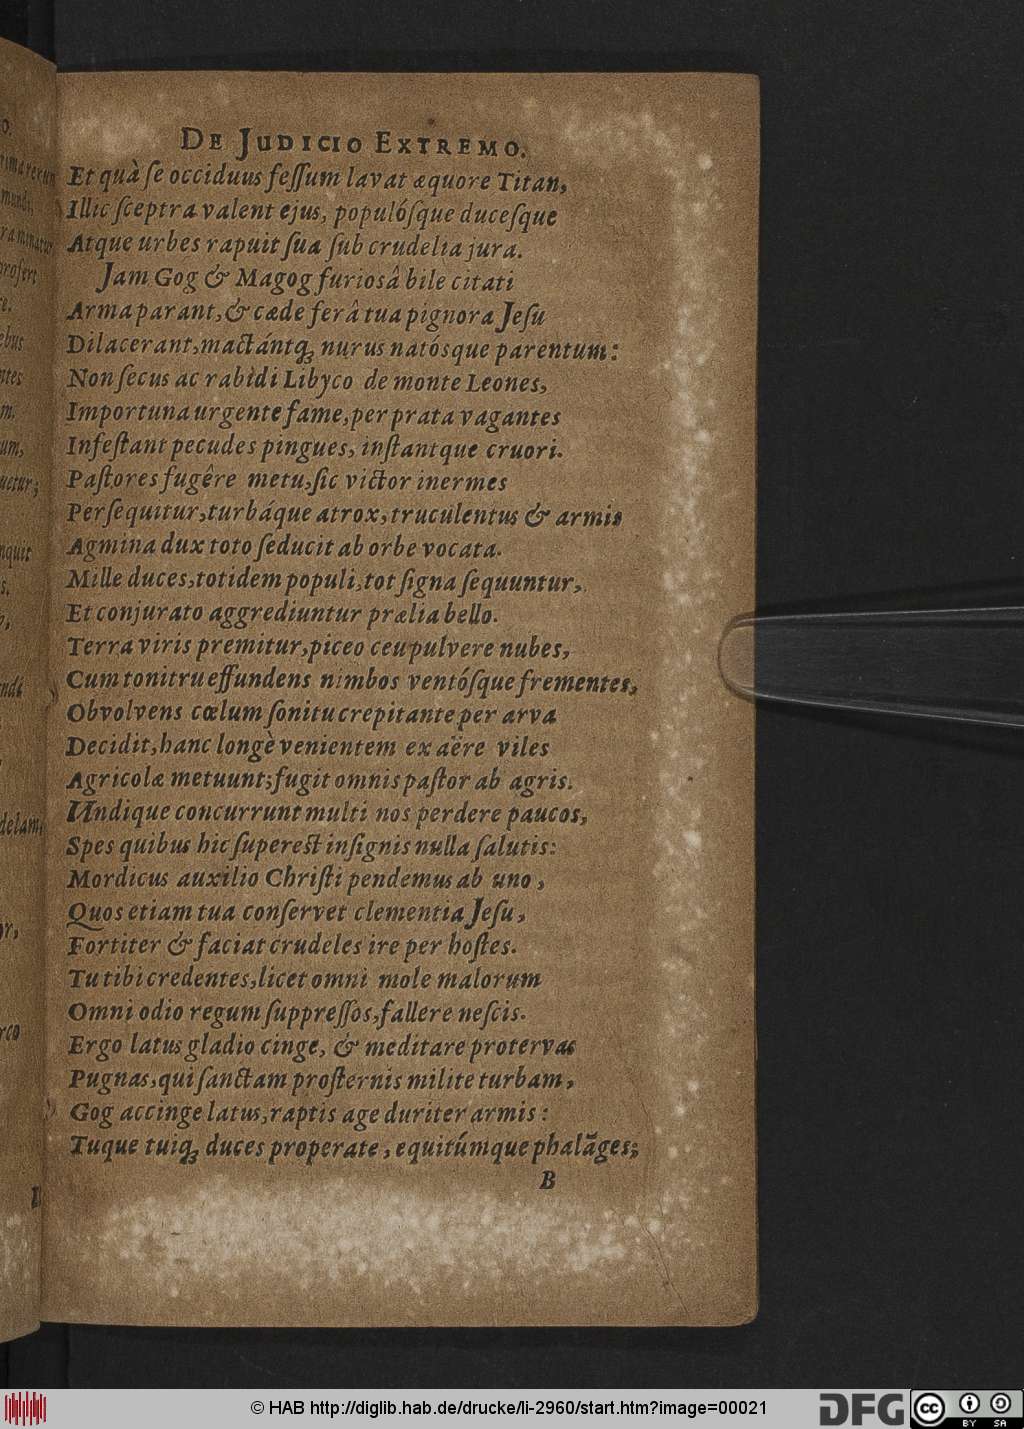 DE JUDICIO EXTREMO.
Et quà ſe occiduus feſſum lavat æquore Titan,
Illic ſceptra valent ejus, populóſque duceſque
Atque urbes rapuit ſua ſub crudelia jura.
Jam Gog & Magog furiosâ bile citati
Arma parant, & cæde ferâ tua pignora Jeſu
Dilacerant, mactántq́; nurus natósque parentum:
Non ſecus ac rabidi Libyco de monte Leones,
Importuna urgente fame, per prata vagantes
Infeſtant pecudes pingues, inſtantque cruori.
Paſtores fugêre metu, ſic victor inermes
Perſequitur, turbáque atrox, truculentus & armis
Agmina dux toto ſeducit ab orbe vocata.
Mille duces, totidem populi, tot ſigna ſequuntur,
Et conjurato aggrediuntur prælia bello.
Terra viris premitur, piceo ceu pulvere nubes,
Cum tonitru effundens nimbos ventóſque frementes,
Obvolvens cœlum ſonitu crepitante per arva
Decidit, hanc longè venientem ex aëre viles
Agricolæ metuunt; fugit omnis paſtor ab agris.
Undique concurrunt multi nos perdere paucos,
Spes quibus hic ſupereſt inſignis nulla ſalutis:
Mordicus auxilio Chriſti pendemus ab uno,
Quos etiam tua conſervet clementia Jeſu,
Fortiter & faciat crudeles ire per hoſtes.
Tu tibi credentes, licet omni mole malorum
Omni odio regum ſuppreſſos, fallere neſcis.
Ergo latus gladio cinge, & meditare protervas
Pugnas, qui ſanctam proſternis milite turbam,
Gog accinge latus, raptis age duriter armis:
Tuque tuiq́; duces properate, equitúmque phalāges;
B
© HAB http://diglib.hab.de/drucke/li-2960/start.htm?image=00021
DFG
cc BY SA